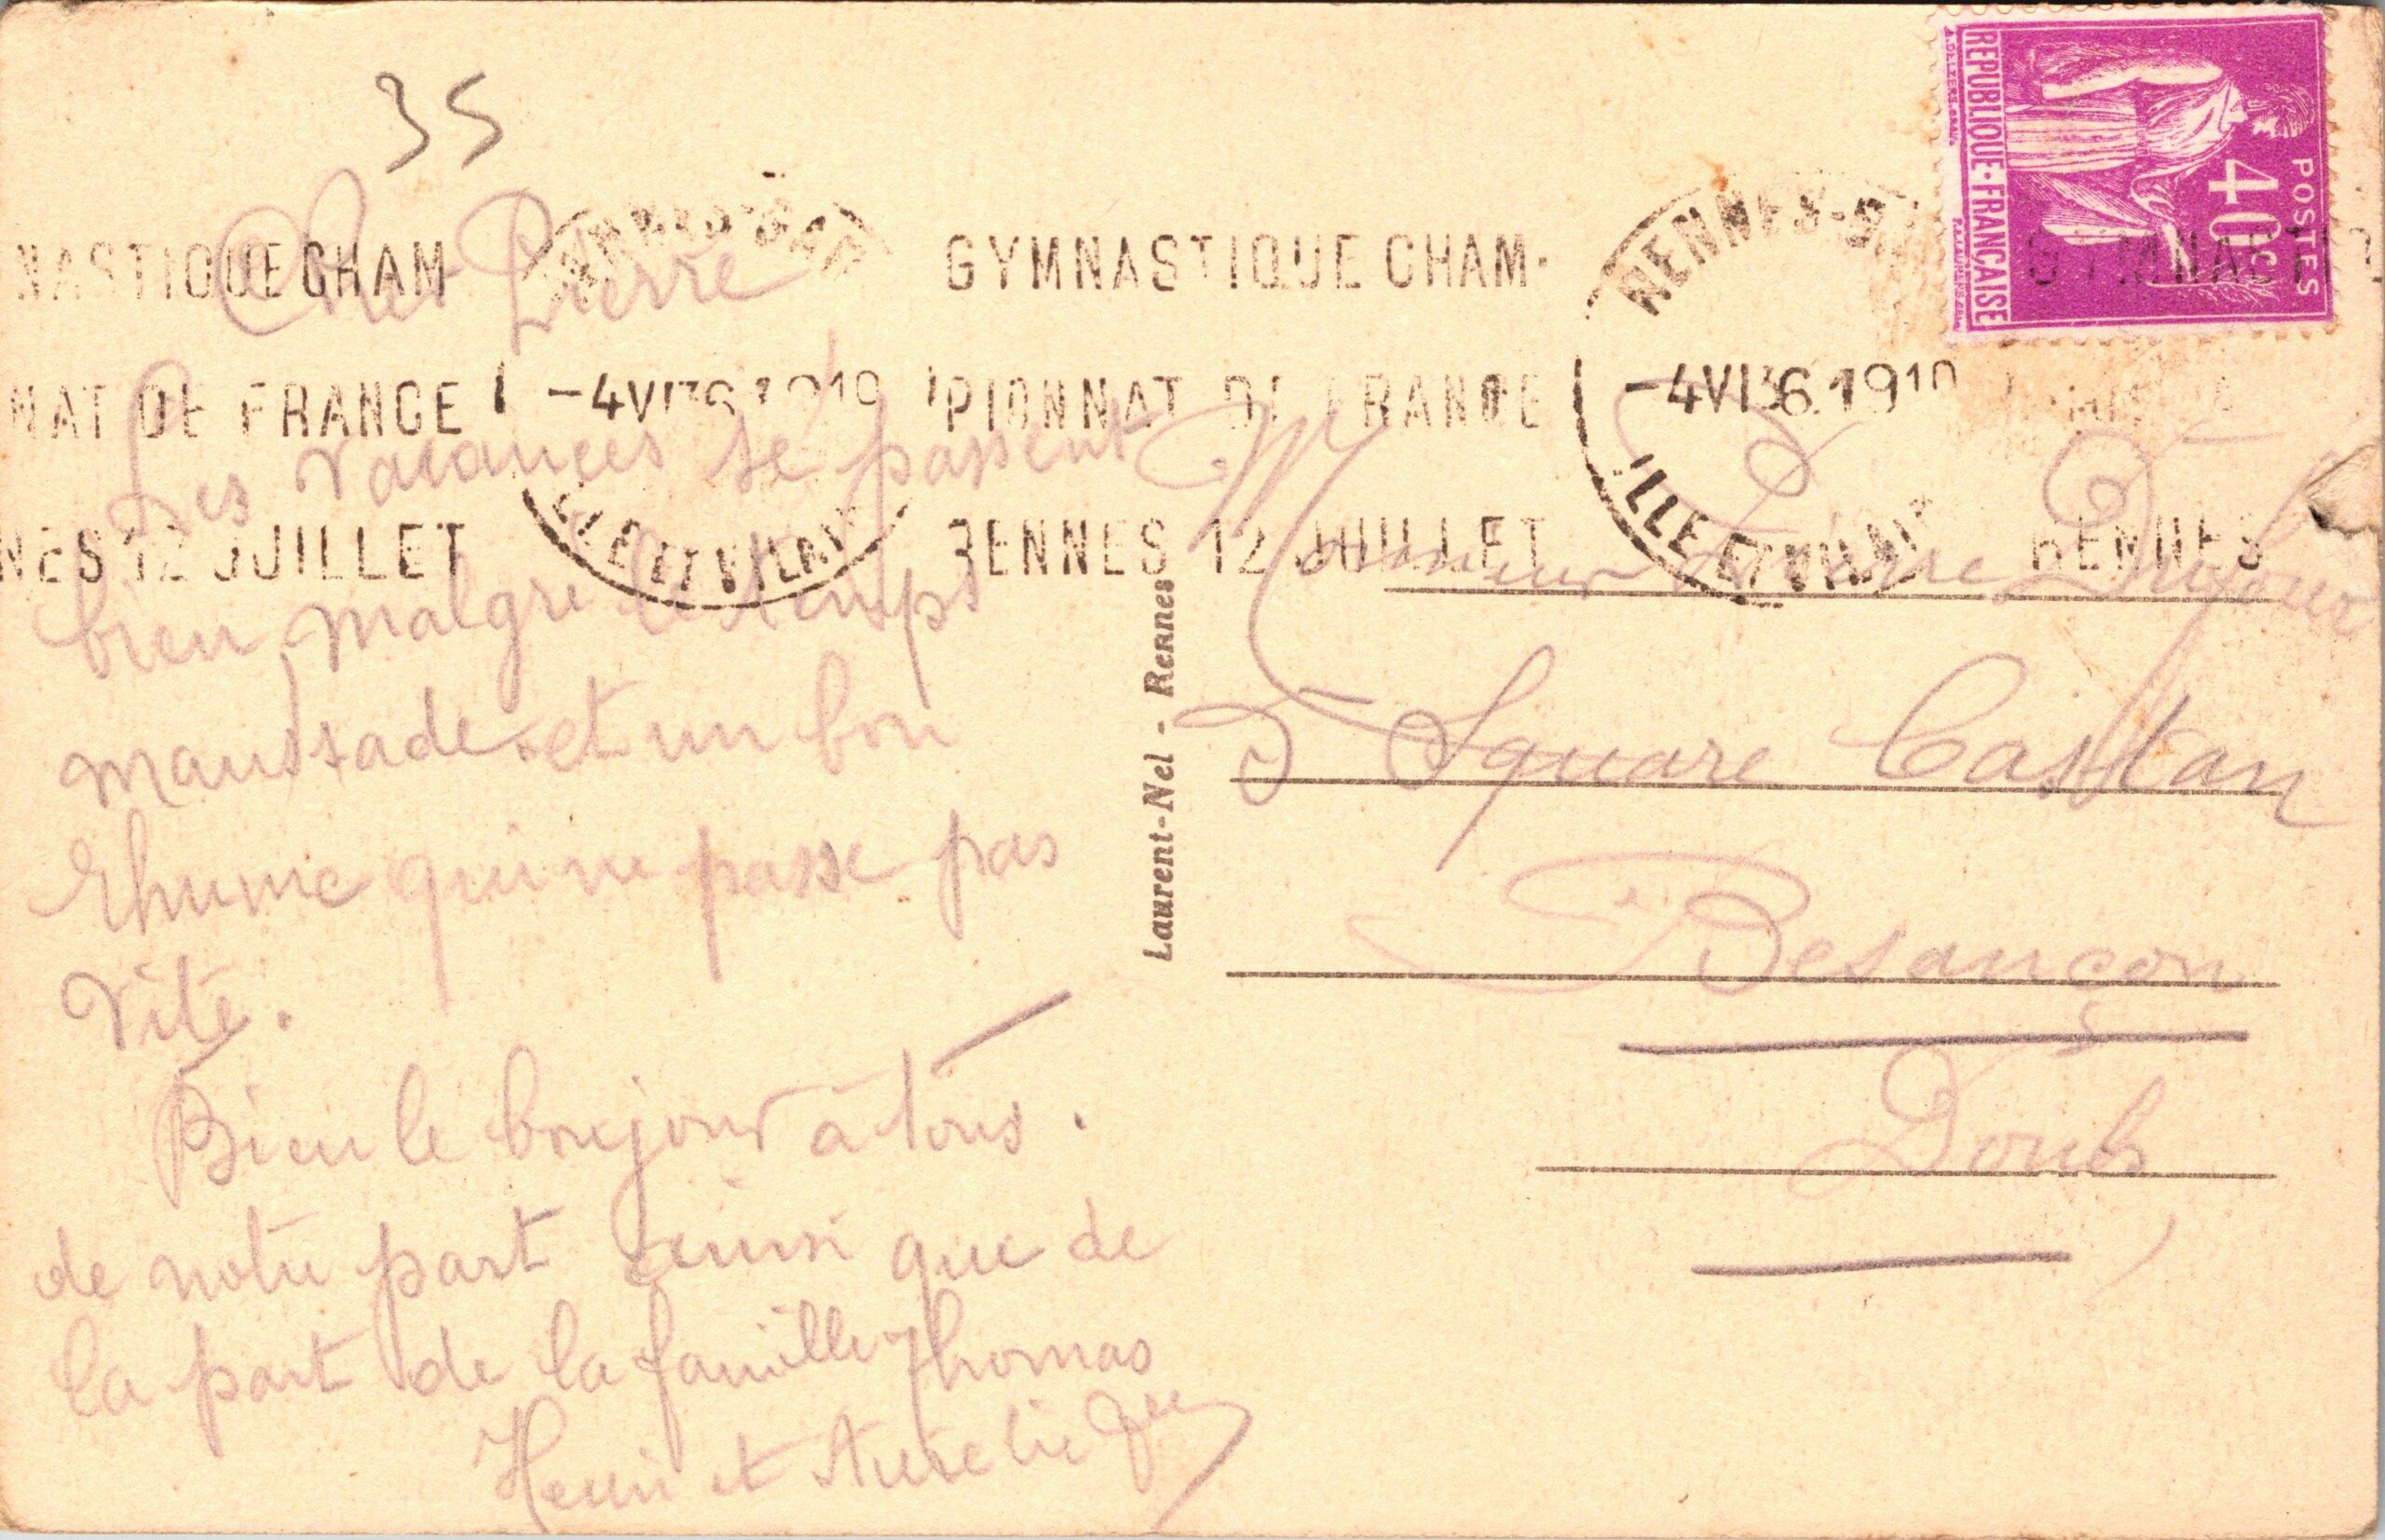 35
NASTIQUE CHAM
NAT DE FRANCE
NES 12 JUILLET
-4 VI 36 1910
ILLE ET VILAINE
GYMNASTIQUE CHAM-
PIONNAT DE FRANCE
RENNES 12 JUILLET
RENNES-GARE
-4 VI 36 1910
ILLE ET VILAINE
GYMNASTIQ
RENNES
POSTES
40c
REPUBLIQUE·FRANÇAISE
Cher Pierre
Les vacances se passent
bien malgré le temps
maussade et un bon
rhume qui ne passe pas
vite.
Bien le bonjour à tous.
de notre part ainsi que de
la part de la famille Thomas
Henri et Aurélie
Laurent-Nel - Rennes
Monsieur Pierre
2 Square Castan
Besançon
Doubs